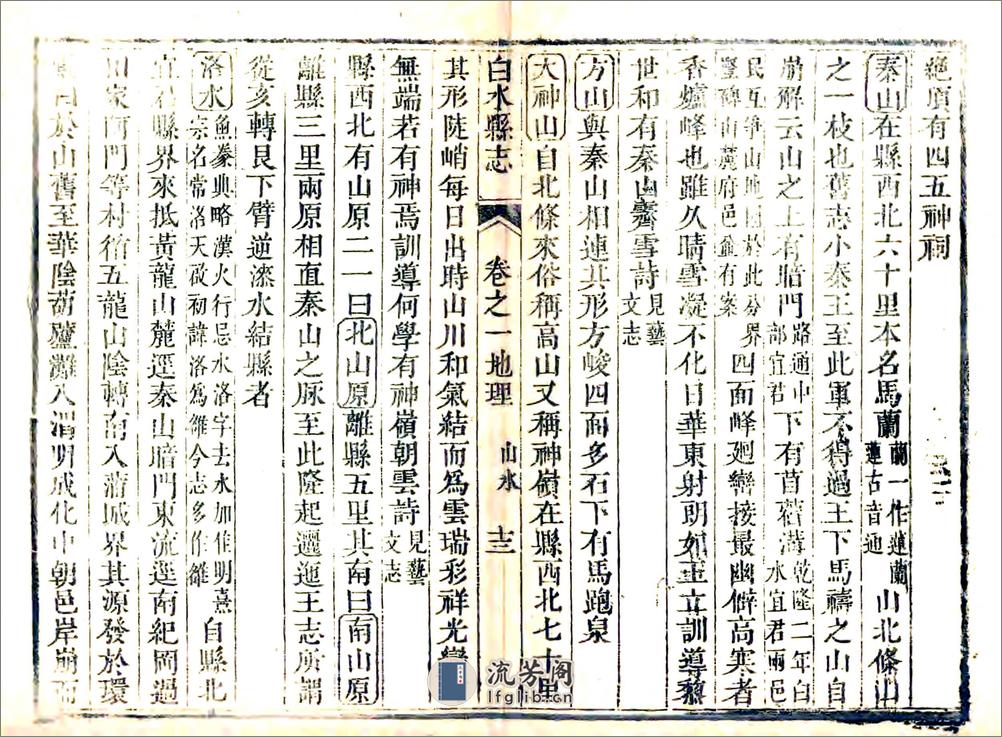 絶頂有四五神祠
秦山在縣西北六十里本名馬蘭蘭一作蓮蘭蓮古音通山北條山
之一枝也舊志小秦王至此軍不得過王下馬禱之山自
崩解云山之上有暗門路通中部宜君下有苜蓿溝乾隆二年白水宜君兩邑
民互爭山地因於此分界豎碑山麓府邑並有案四面峰廻巒接最幽僻高寒者
香爐峰也雖久晴雪凝不化日華東射明如玉立訓導蔡
世和有秦山霽雪詩見藝文志
方山與秦山相連其形方峻四面多石下有馬跑泉
大神山自北條來俗稱高山又稱神嶺在縣西北七十里
白水縣志 卷之一地理 山水 十三
其形陡峭每日出時山川和氣結而爲雲瑞彩祥光變
無端若有神焉訓導何學有神嶺朝雲詩見藝文志
縣西北有山原二一曰北山原離縣五里其南曰南山原
離縣三里兩原相直秦山之脉至此隆起邐迤王志所謂
從亥轉艮下臂逆漆水結縣者
洛水魚豢典略漢火行忌水洛字去水加隹明熹宗名常洛天啟初諱洛爲雒今志多作雒自縣北
宜君縣界來抵黃龍山麓逕秦山暗門東流逕南紀岡過
川家河門等村循五龍山陰轉南入蒲城界其源發於環
於山舊至華陰葫蘆灘入渭明成化中朝邑岸崩而
流芳阁
lfglib.cn